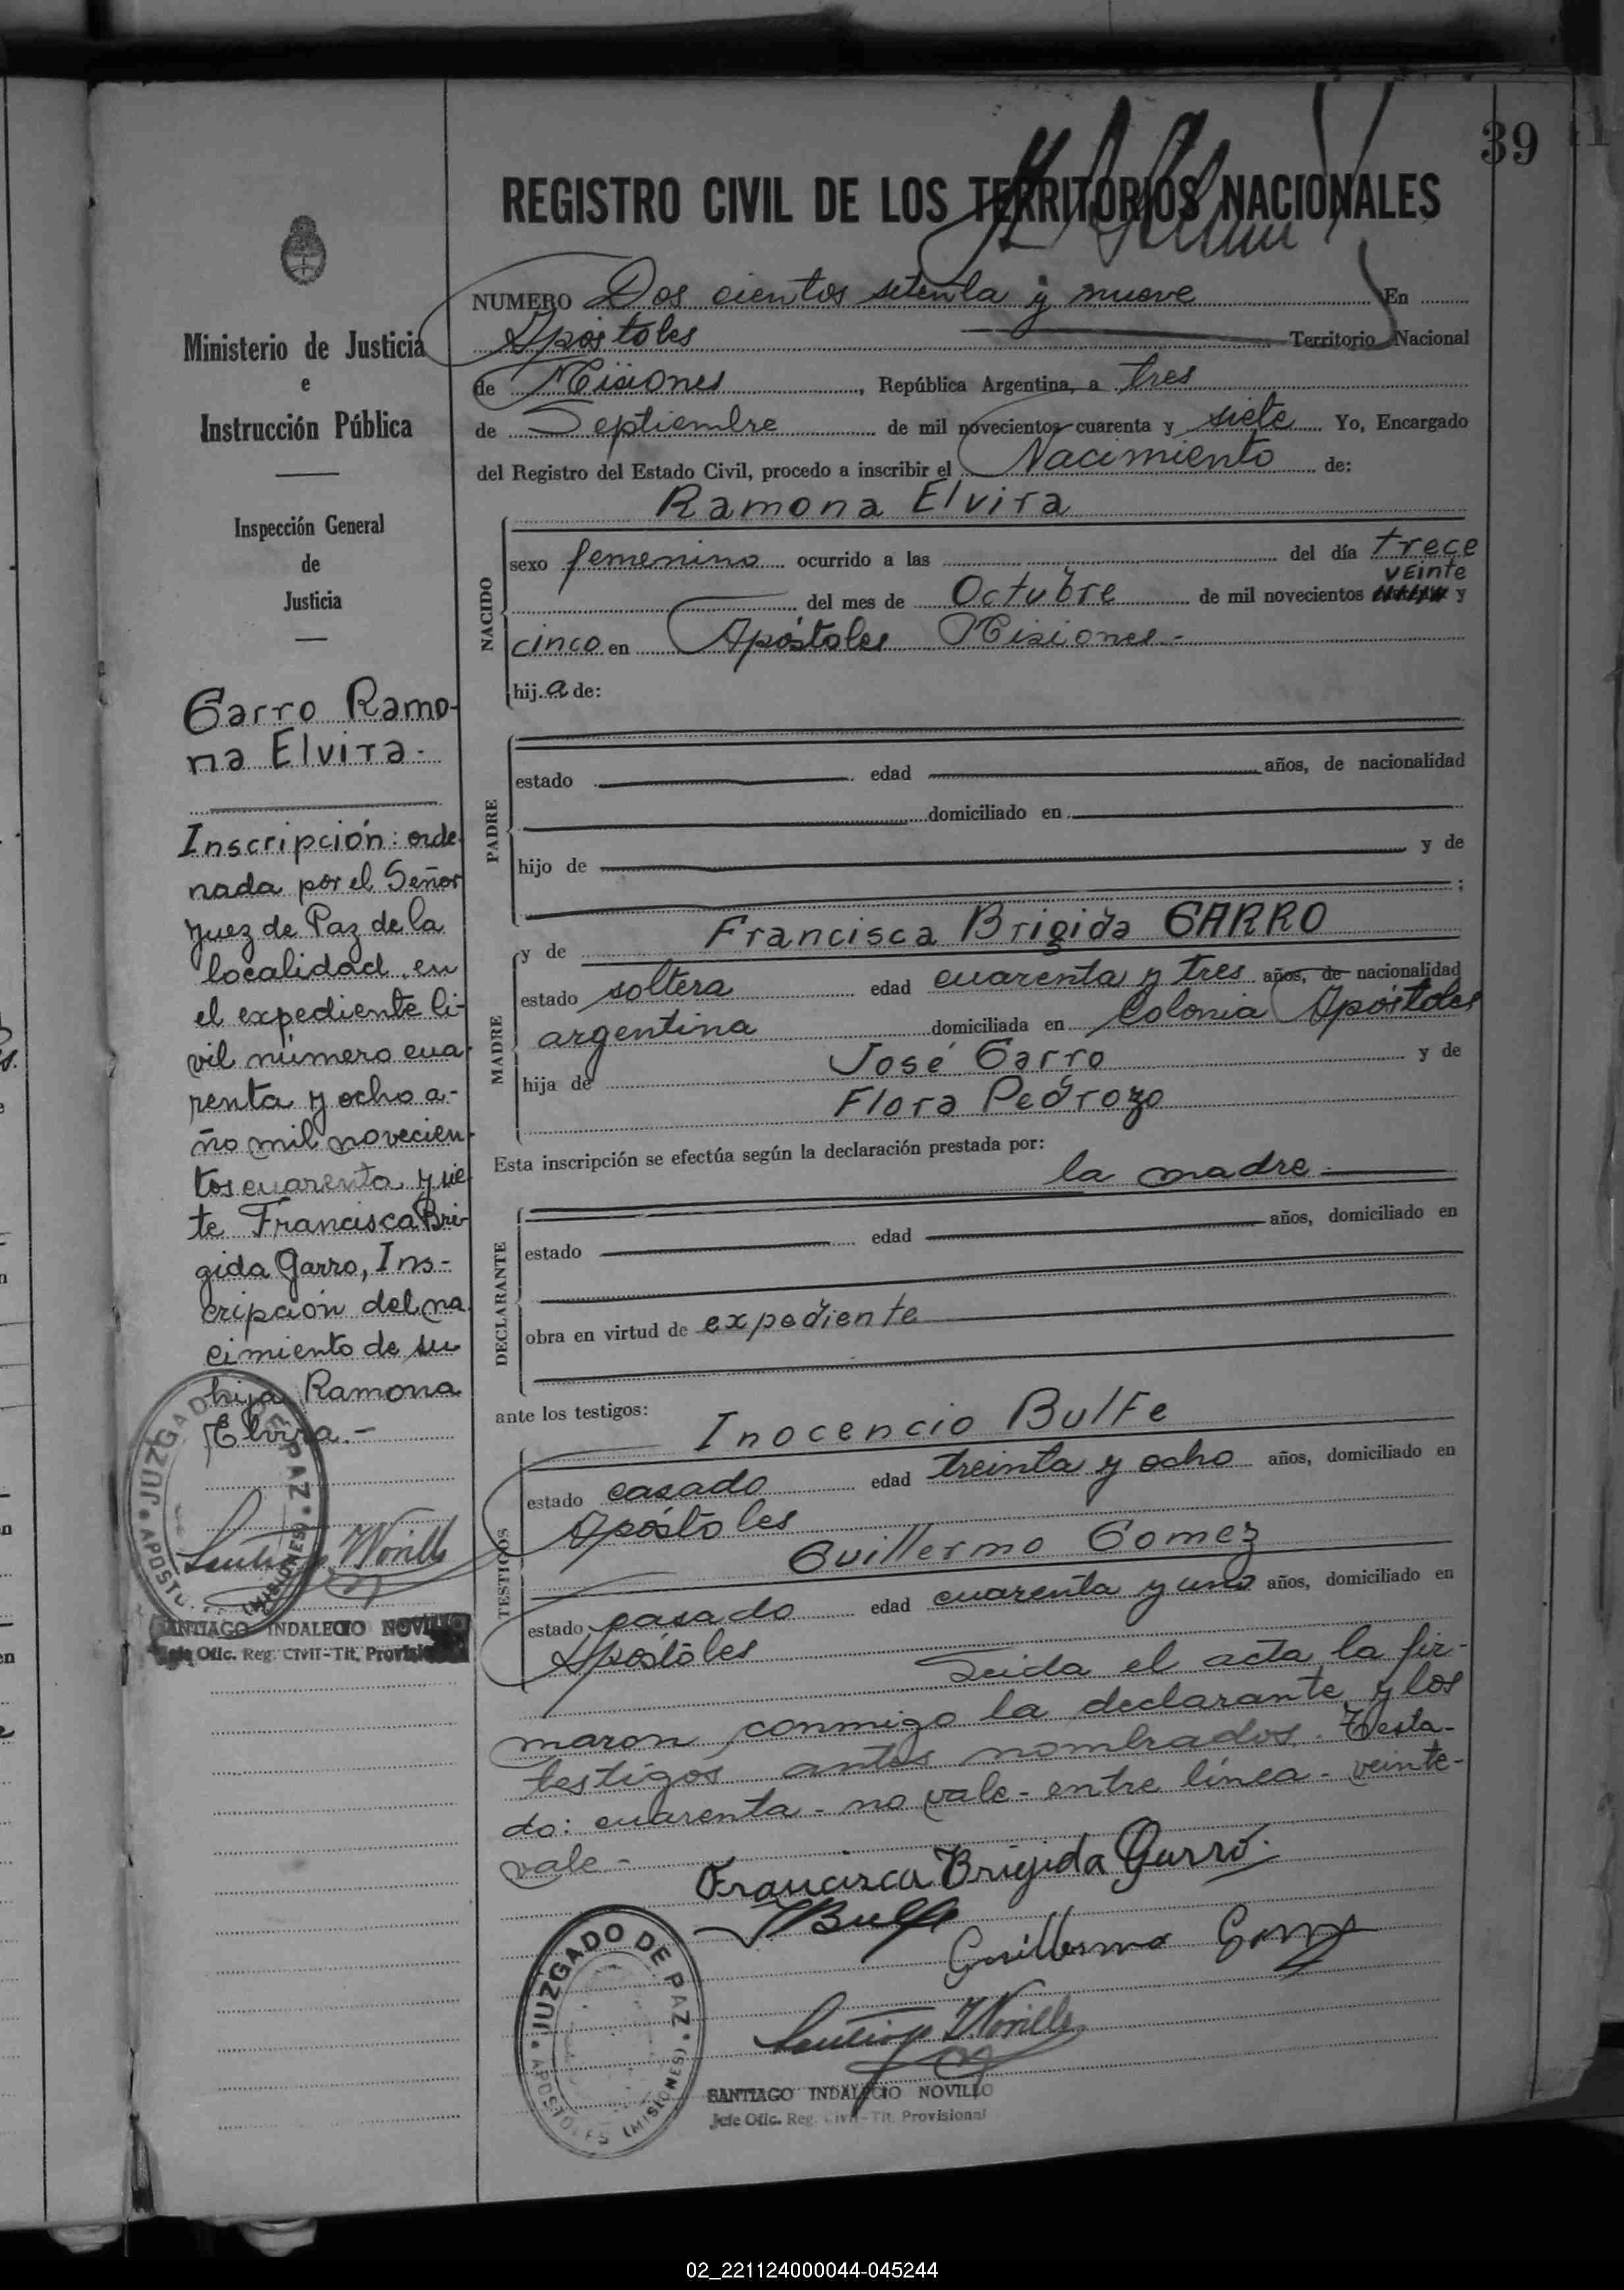 39
REGISTRO CIVIL DE LOS TERRITORIOS NACIONALES
Ministerio de Justicia
e
Instrucción Pública
Inspección General
de
Justicia
Garro Ramo-
na Elvira.-
Inscripción: orde-
nada por el Señor
Juez de Paz de la
localidad en
el expediente Ci-
vil número cua-
renta y ocho a-
ño mil novecien-
tos cuarenta y sie-
te Francisca Bri-
gida Garro, Ins-
cripción del na
cimiento de su
hija Ramona
Elvira.-
JUZGADO DE PAZ
APOSTOLES (MISIONES)
SANTIAGO INDALECIO NOVILLO
Jefe Ofic. Reg. Civil-Tit. Provisional
NUMERO Dos cientos setenta y nueve En
Apóstoles Territorio Nacional
de Misiones, República Argentina, a tres
de Septiembre de mil novecientos cuarenta y siete Yo, Encargado
del Registro del Estado Civil, procedo a inscribir el Nacimiento de:
NACIDO
Ramona Elvira
sexo femenino ocurrido a las del día trece
veinte
del mes de Octubre de mil novecientos y
cinco en Apóstoles Misiones-
hija de:
PADRE
estado edad años, de nacionalidad
domiciliado en
hijo de y de
;
MADRE
y de Francisca Brigida GARRO
estado soltera edad cuarenta y tres años, de nacionalidad
argentina domiciliada en Colonia Apóstoles
hija de José Garro y de
Flora Pedrozo
Esta inscripción se efectúa según la declaración prestada por:
la madre
DECLARANTE
estado edad años, domiciliado en
obra en virtud de expediente
ante los testigos:
TESTIGOS
Inocencio Bulfe
estado casado edad treinta y ocho años, domiciliado en
Apóstoles
Guillermo Gomez
estado casado edad cuarenta y uno años, domiciliado en
Apóstoles Leida el acta la fir-
maron conmigo la declarante y los
testigos antes nombrados. Testa-
do: cuarenta - no vale - entre línea - veinte-
vale -
Francisca Brigida Garro.
JBulfe
Guillermo Gomez
Santiago I Novillo
JUZGADO DE PAZ
APOSTOLES (MISIONES)
SANTIAGO INDALECIO NOVILLO
Jefe Ofic. Reg. Civil-Tit. Provisional
02_221124000044-045244